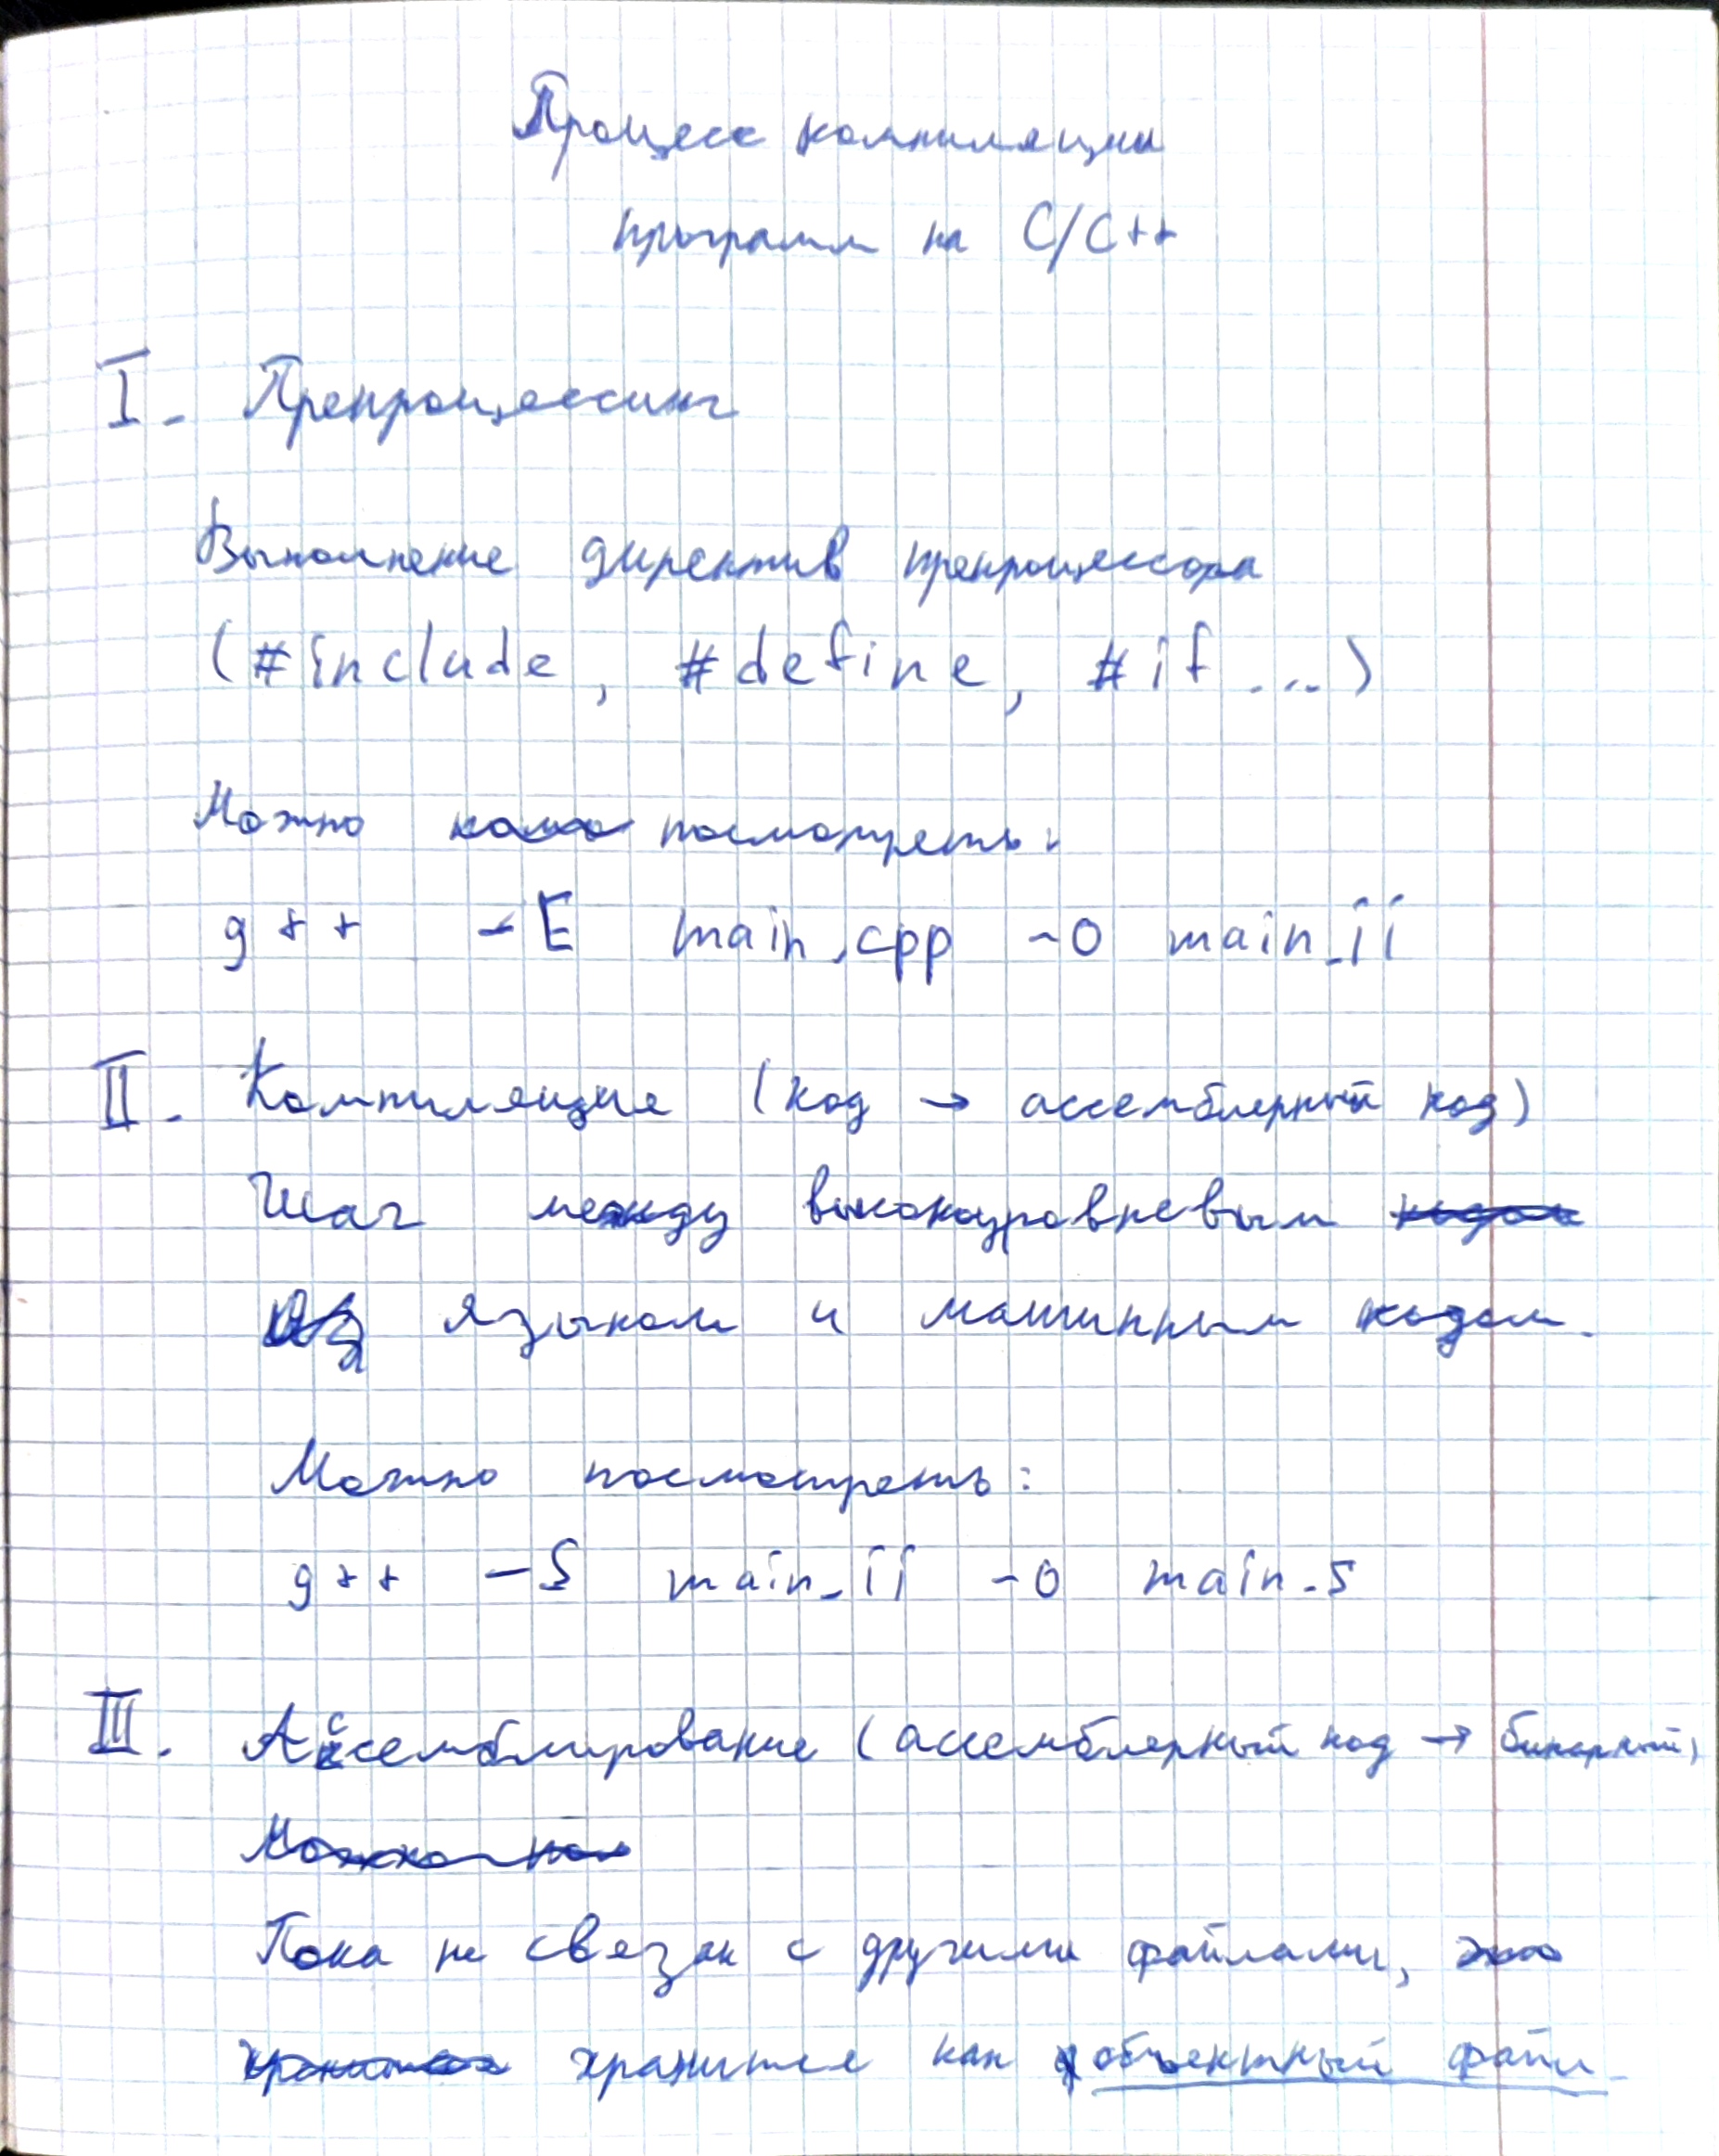 Процесс компиляции
программ на C/C++
I. Препроцессинг
Выполнение директив препроцессора
(#include, #define, #if ...)
Можно посмотреть:
g++ -E main.cpp -o main.ii
II. Компиляция (код → ассемблерный код)
Шаг между высокоуровневым
языком и машинным кодом.
Можно посмотреть:
g++ -S main.ii -o main.s
III. Ассемблирование (ассемблерный код → бинарный)
Пока не связан с другими файлами,
хранится как объектный файл